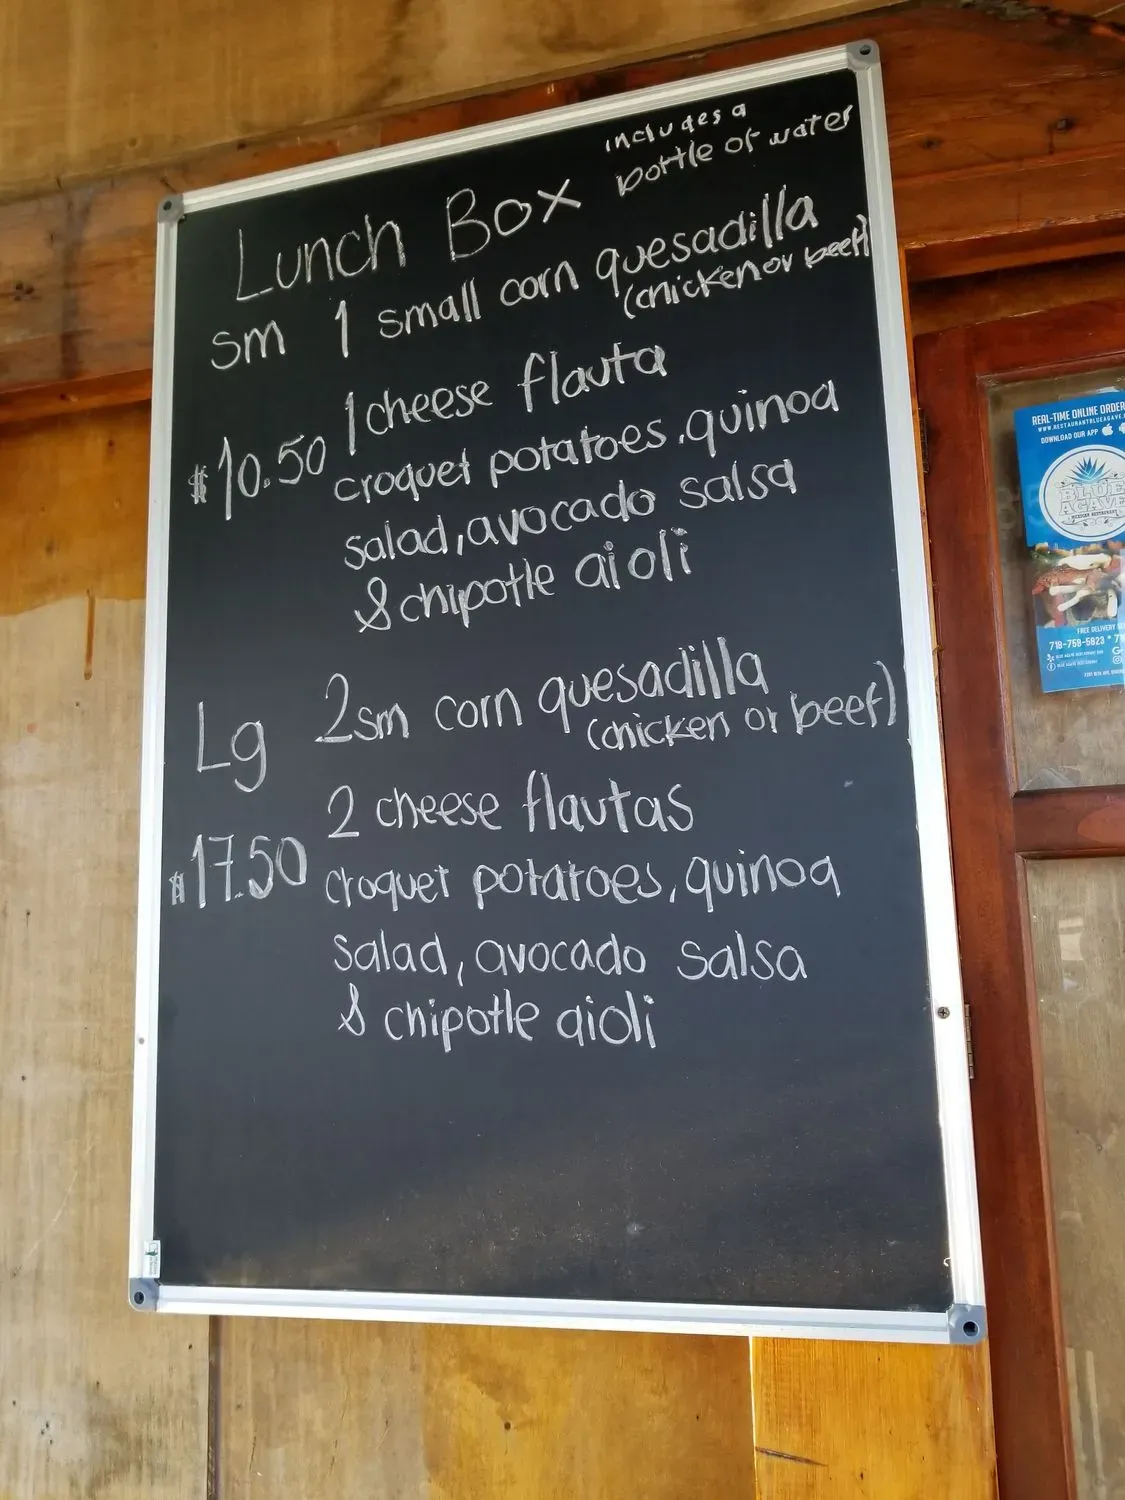 includes a
Lunch Box bottle of water
sm 1 small corn quesadilla
(chicken or beef)
1 cheese flauta
$10.50 croquet potatoes, quinoa
salad, avocado salsa
& chipotle aioli
Lg 2sm corn quesadilla
(chicken or beef)
2 cheese flautas
$17.50 croquet potatoes, quinoa
salad, avocado salsa
& chipotle aioli
REAL-TIME ONLINE ORDER
DOWNLOAD OUR APP
BLUE
AGAVE
MEXICAN RESTAURANT
FREE DELIVERY
718-759-5823